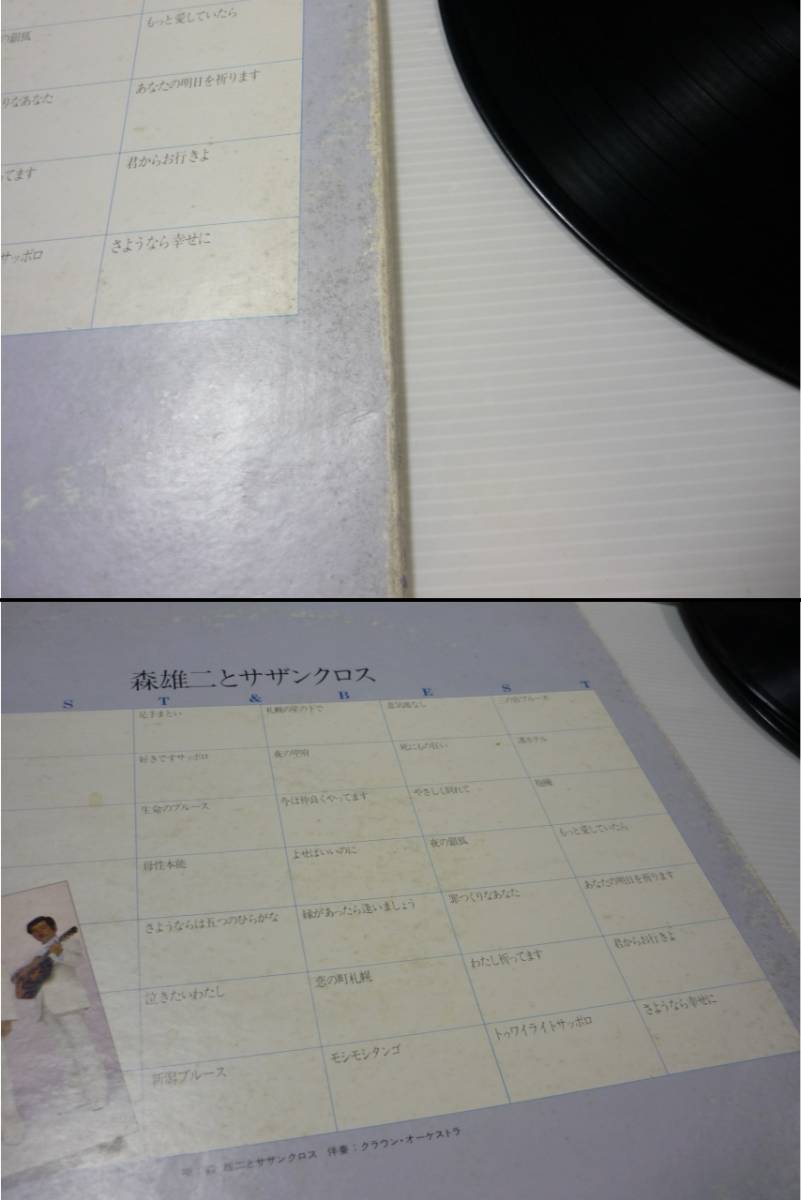 もっと愛していたら
の銀狐
あなたの明日を祈ります
りなあなた
君からお行きよ
ってます
さようなら幸せに
サッポロ
森雄二とサザンクロス
S T & B E S T
足手まとい
札幌の星の下で
意気地なし
の宿ブルース
好きですサッポロ
夜の甲府
死にもの狂い
港ホテル
生命のブルース
今は仲良くやってます
やさしく別れて
抱擁
母性本能
よせばいいのに
夜の銀狐
もっと愛していたら
さようならは五つのひらがな
縁があったら逢いましょう
罪つくりなあなた
あなたの明日を祈ります
泣きたいわたし
恋の町札幌
わたし祈ってます
君からお行きよ
新潟ブルース
モシモシタンゴ
トゥワイライトサッポロ
さようなら幸せに
唄：森 雄二とサザンクロス 伴奏：クラウン・オーケストラ